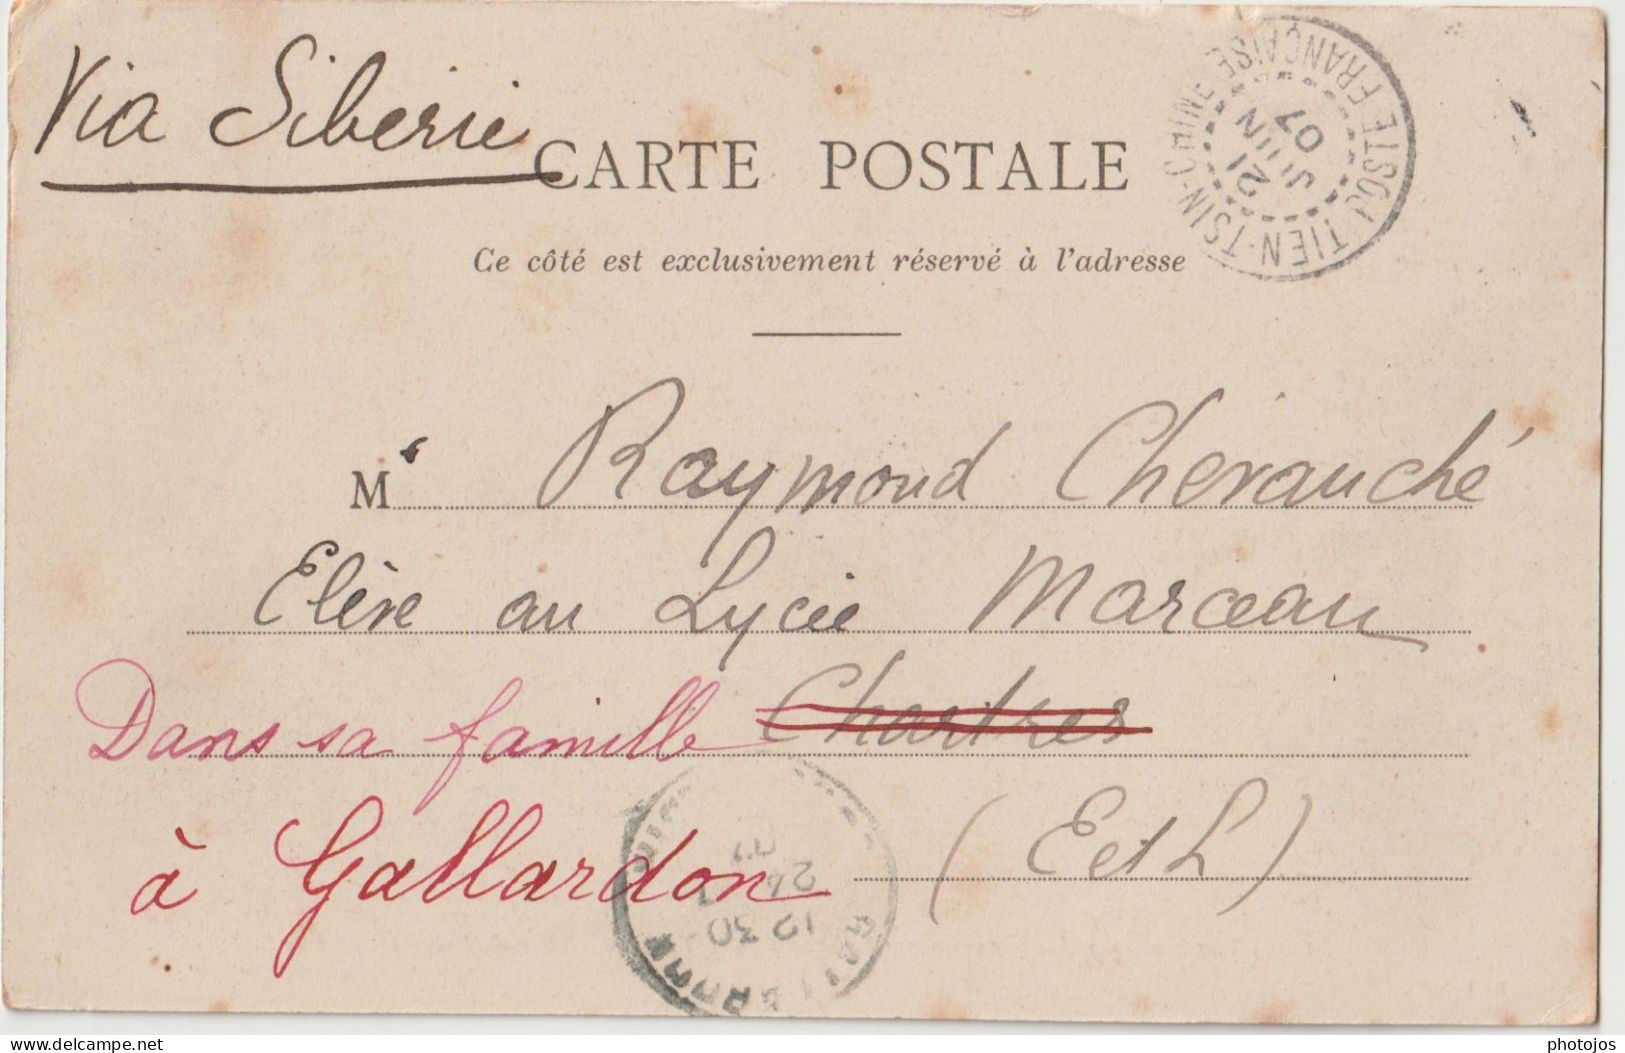 Via Siberie
CARTE POSTALE
TIEN-TSIN-CHINE POSTE FRANÇAISE
21
JUIN
07
Ce côté est exclusivement réservé à l'adresse
M Raymond Chevauché
Elève au Lycée Marceau
Dans sa famille Chartres
à Gallardon (E et L)
12 30
24
delcampe.net
photojos